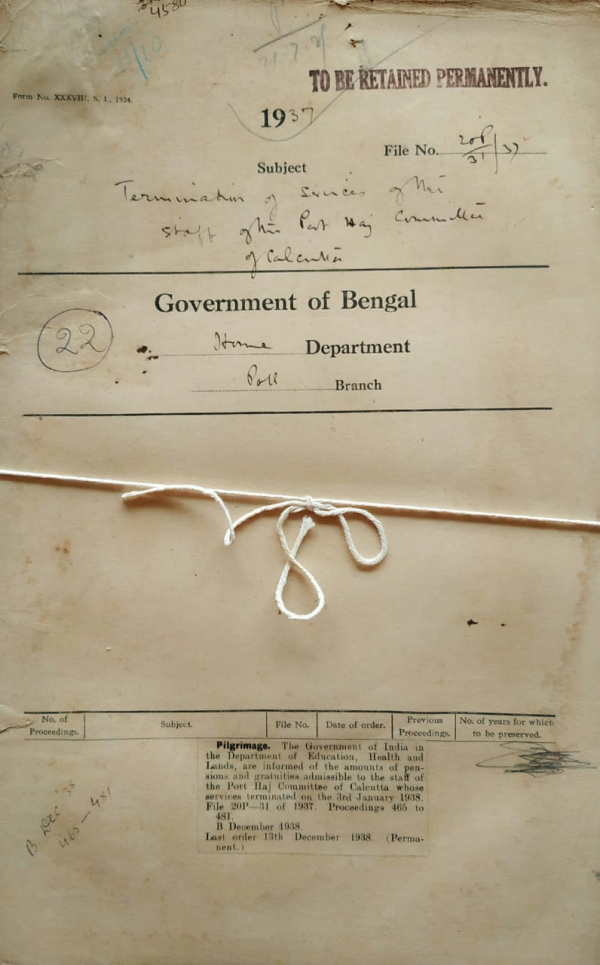 4580
TO BE RETAINED PERMANENTLY.
Form No. XXXVIII, S. I., 1934.
1937
File No. 20P/31/37
Subject
Termination of Services of the
staff of the Port Haj Committee
of Calcutta
Government of Bengal
22
Home Department
Poll Branch
No. of Proceedings. Subject. File No. Date of order. Previous Proceedings. No. of years for which to be preserved.
Pilgrimage. The Government of India in
the Department of Education, Health and
Lands, are informed of the amounts of pen-
sions and gratuities admissible to the staff of
the Port Haj Committee of Calcutta whose
services terminated on the 3rd January 1938.
File 20P—31 of 1937. Proceedings 465 to
481.
B December 1938.
Last order 13th December 1938. (Perma-
nent.)
B Dec '38
465 – 481